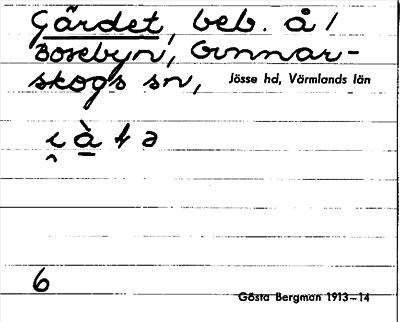 Gärdet, beb. å 1
Bosebyn, Gunnar-
skogs sn, Jösse hd, Värmlands län
6
Gösta Bergman 1913–14